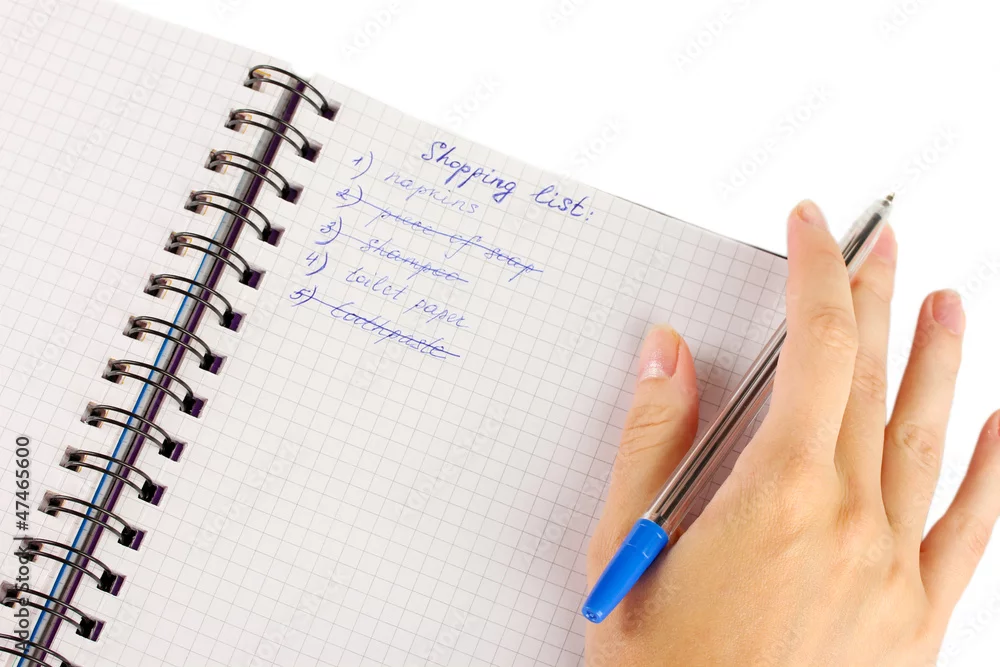 Shopping list:
1) napkins
2) piece of soap
3) shampoo
4) toilet paper
5) toothpaste
Adobe Stock | #47465600